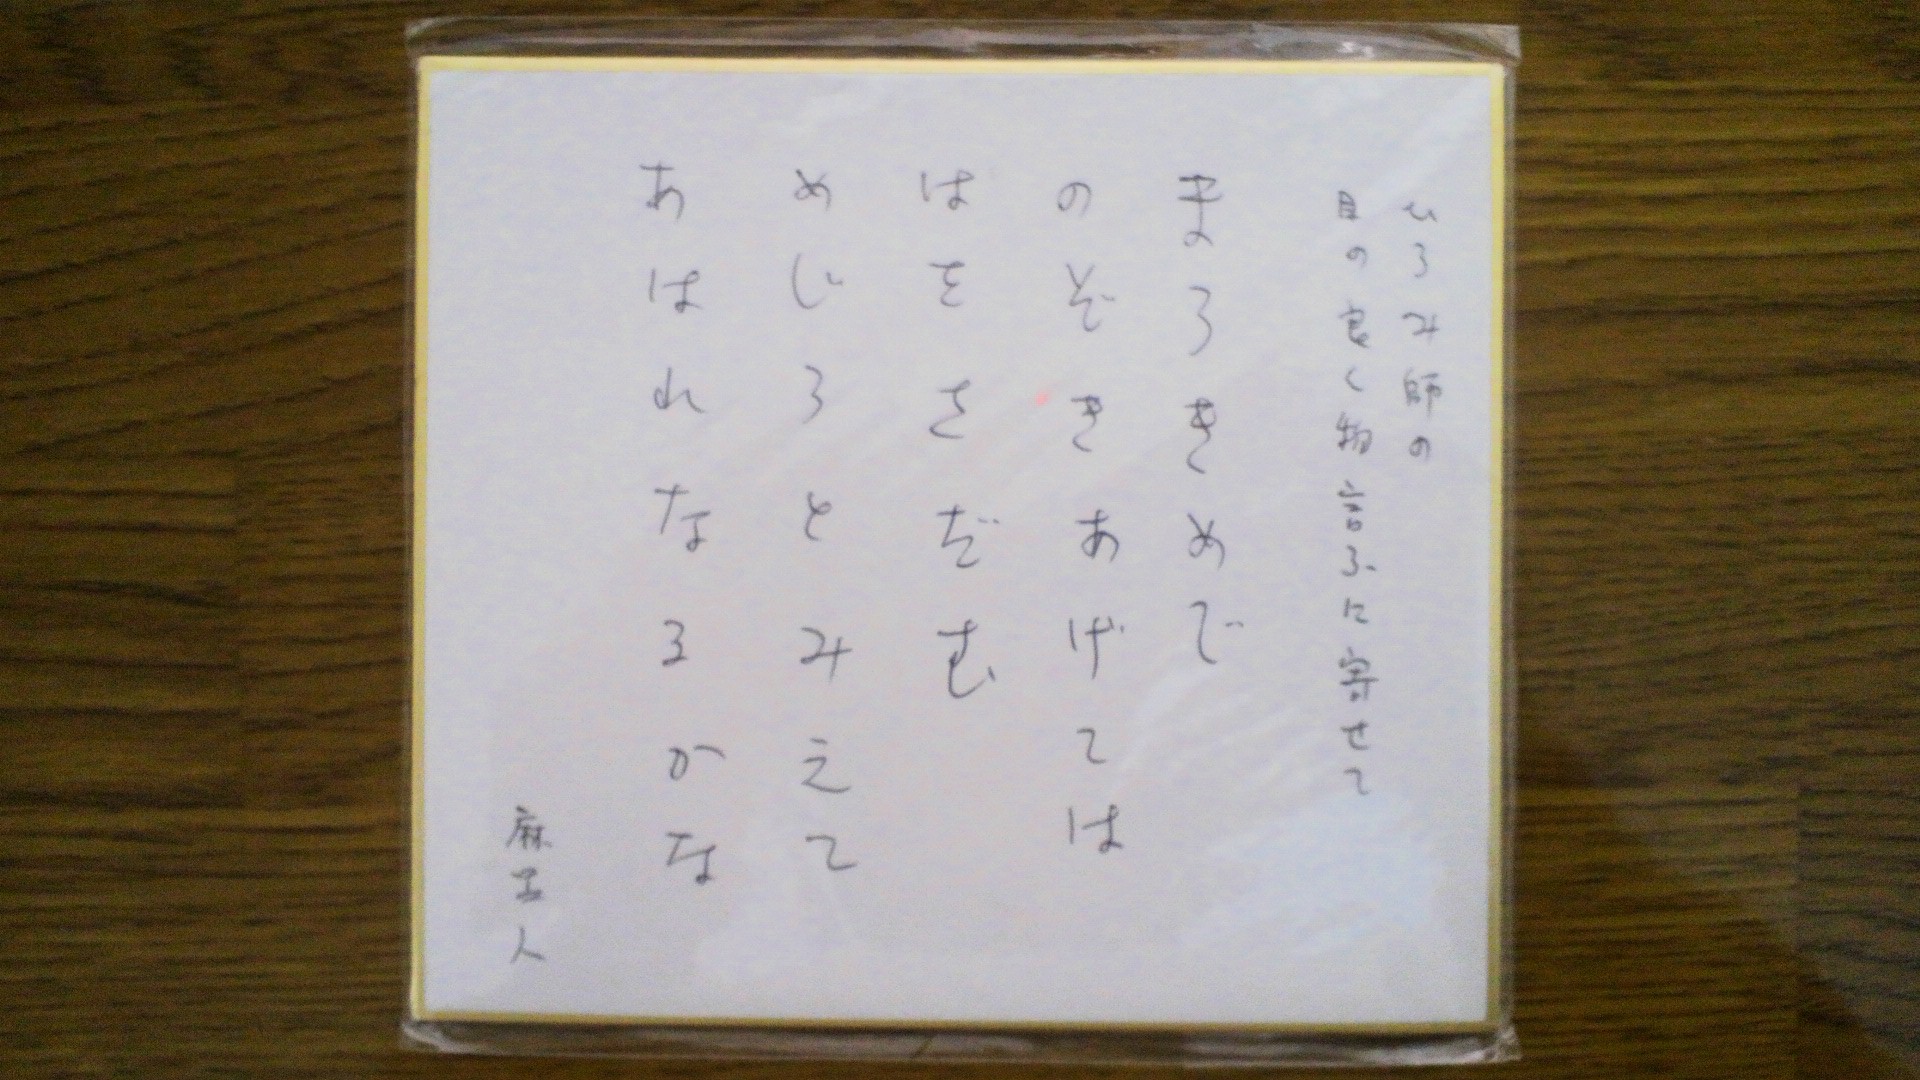 ひろみ師の
目の良く物言ふに寄せて
まろきめで
のぞきあげては
はをさだむ
めじろとみえて
あはれなるかな
麻玉人